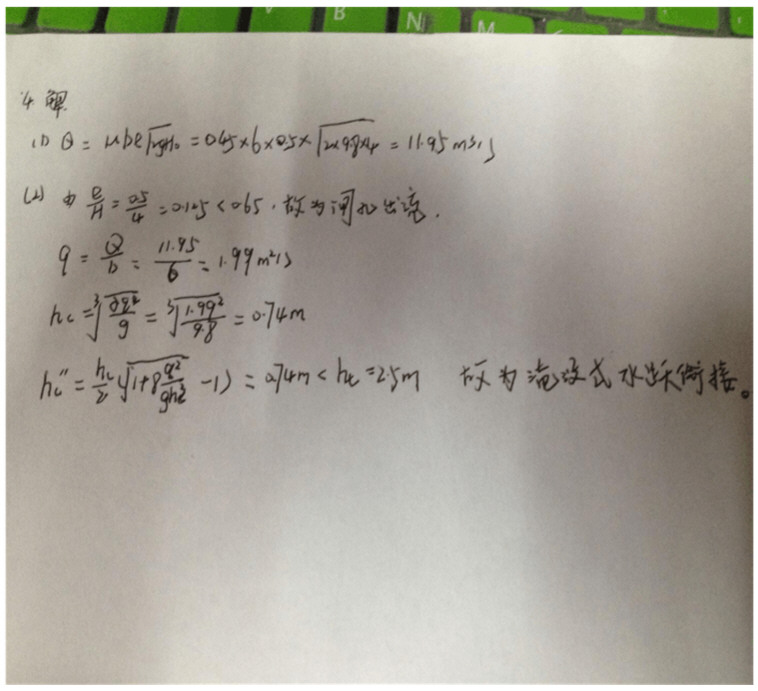 B N M
4. 解
(1) Q = μbe√2gH₀ = 0.45×6×0.5×√2×9.8×4 = 11.95 m³/s
(2) 由 e/H = 0.5/4 = 0.125 < 0.65, 故为闸孔出流.
q = Q/b = 11.95/6 = 1.99 m²/s
hc = ³√(αq²/g) = ³√(1.99²/9.8) = 0.74m
hc″ = hc/2 (√(1+8 q²/ghc³) -1) = 0.74m < ht = 2.5m 故为淹没式水跃衔接。